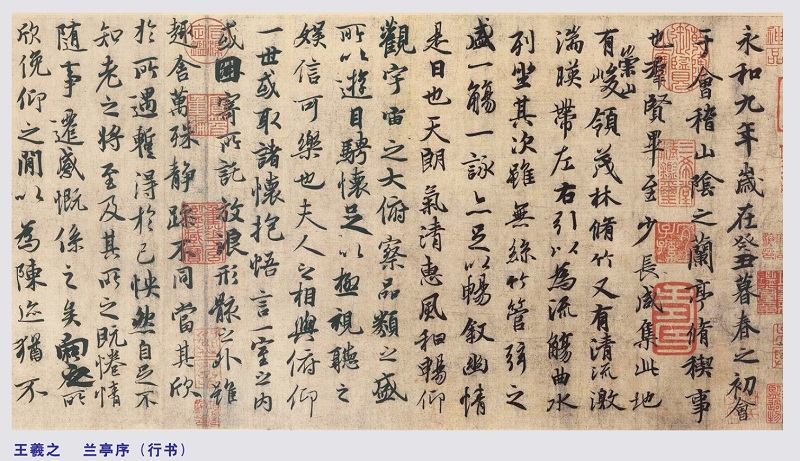 永和九年歲在癸丑暮春之初會
于會稽山陰之蘭亭脩稧事
也羣賢畢至少長咸集此地
有崇山峻領茂林脩竹又有清流激
湍暎帶左右引以為流觴曲水
列坐其次雖無絲竹管弦之
盛一觴一詠亦足以暢叙幽情
是日也天朗氣清惠風和暢仰
觀宇宙之大俯察品類之盛
所以遊目騁懷足以極視聽之
娛信可樂也夫人之相與俯仰
一世或取諸懷抱悟言一室之內
或因寄所託放浪形骸之外雖
趣舍萬殊靜躁不同當其欣
於所遇暫得於己怏然自足不
知老之將至及其所之既惓情
隨事遷感慨係之矣向之所
欣俛仰之閒以為陳迹猶不
王羲之 兰亭序（行书）